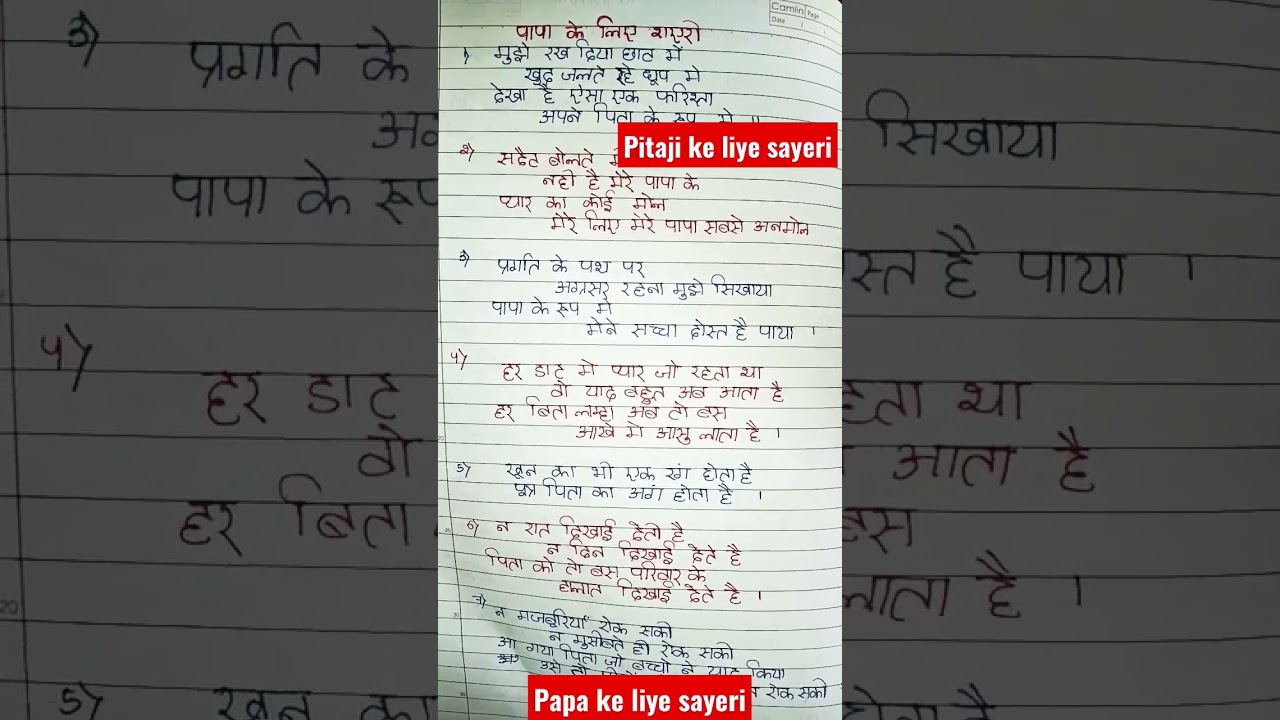 Camlin Page
Date
पापा के लिए शाएरी
1) मुझे रख दिया छाव में
खुद जलते रहे धूप मे
देखा है ऐसा एक फरिश्ता
अपने पिता के रूप मे ॥
Pitaji ke liye sayeri
2) सदैट बोलते
नही है मेरे पापा के
प्यार का कोई मोल
मेरे लिए मेरे पापा सबसे अनमोल
3) प्रगति के पथ पर
अग्रसर रहना मुझे सिखाया
पापा के रूप मे
मेने सच्चा दोस्त है पाया ।
4) हर डाट मे प्यार जो रहता था
वो याद बहुत अब आता है
हर बिता लम्हा अब तो बस
आखे मे आसु लाता है ।
5) खून का भी एक रंग होता है
पुत्र पिता का अंग होता है ।
6) न रात दिखाई देती है
न दिन दिखाई देते है
पिता को तो बस परिवार के
हालात दिखाई देते है ।
7) न मजबूरियाँ रोक सकी
न मुसीबते ही रोक सकी
आ गया पिता जो बच्चो ने याद किया
उसे तो
रोक सकी
Papa ke liye sayeri
3) प्रगति के
सिखाया
पापा के रूप
स्त है पाया ।
4) हर डाट
हता था
वो
आता है
हर बिता
बस
लाता है ।
5) खून का
होता है
20